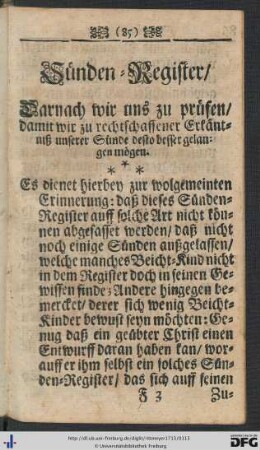 (85)
Sünden-Register/
Darnach wir uns zu prüfen/
damit wir zu rechtschaffener Erkänt-
niß unserer Sünde desto besser gelan-
gen mögen.
* * *
Es dienet hierbey zur wolgemeinten
Erinnerung: daß dieses Sünden-
Register auff solche Art nicht kön-
nen abgefasset werden/ daß nicht
noch einige Sünden außgelassen/
welche manches Beicht-Kind nicht
in dem Register doch in seinen Ge-
wissen finde: Andere hingegen be-
mercket/ derer sich wenig Beicht-
Kinder bewust seyn möchten: Ge-
nug daß ein geübter Christ einen
Entwurff daran haben kan/ wor-
auff er ihm selbst ein solches Sün-
den-Register/ das sich auff seinen
F 3 Zu-
© Universitätsbibliothek Freiburg
Gefördert durch
DFG